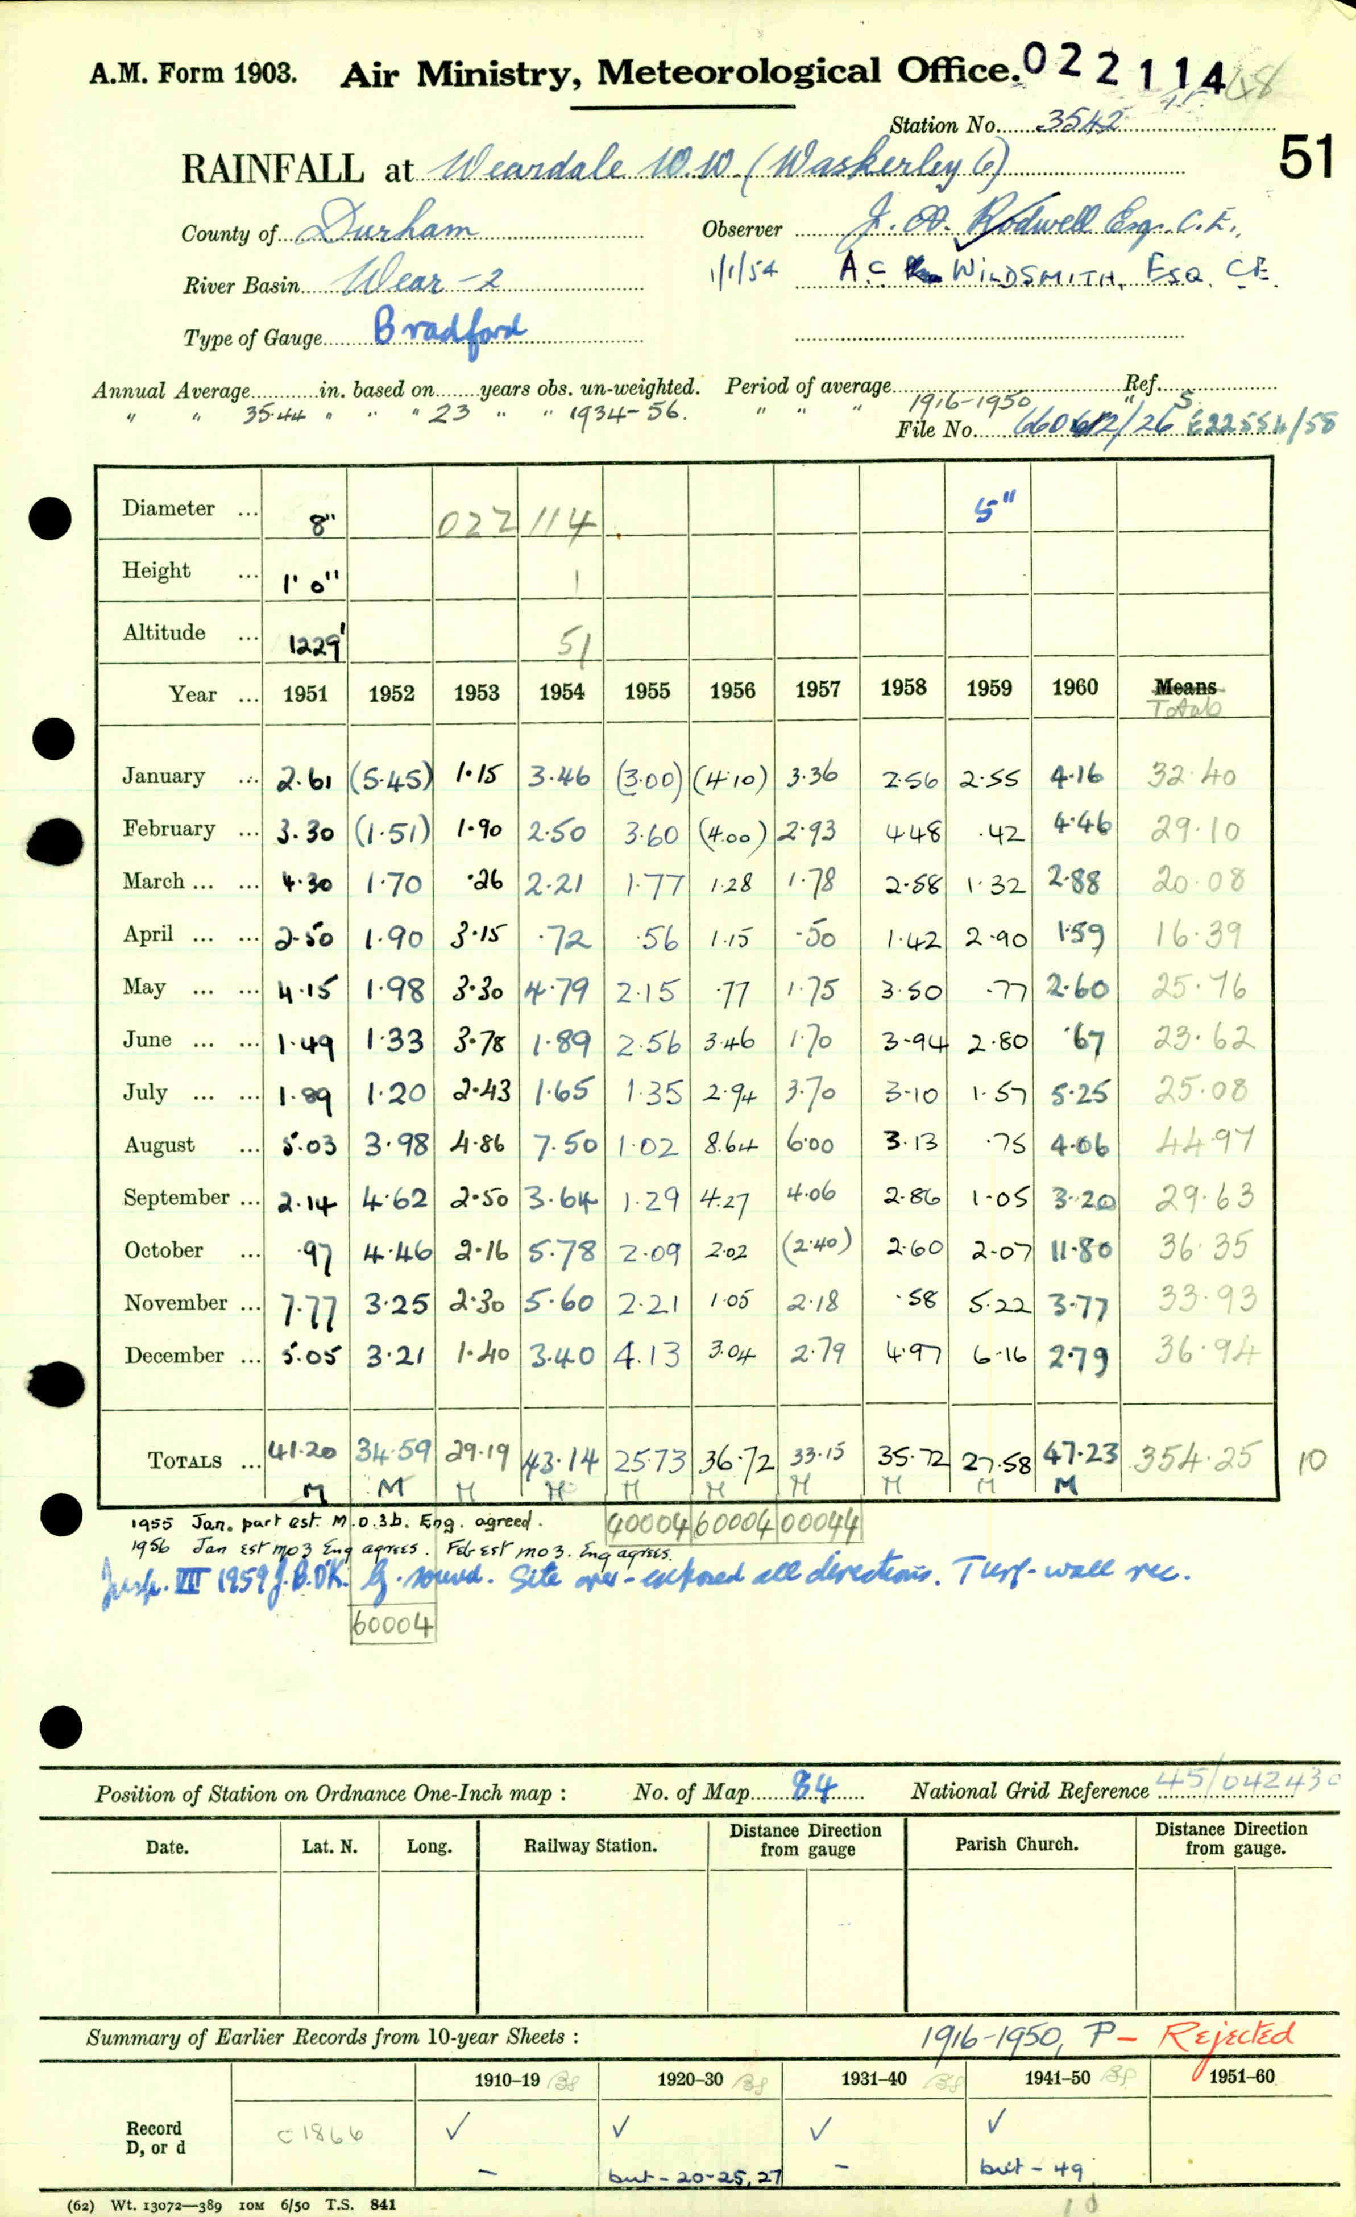 A.M. Form 1903. Air Ministry, Meteorological Office. 022114 48
Station No. 3542
51
RAINFALL at Weardale W.W. (Waskerley 6)
County of Durham Observer J. A. Rodwell Esq. C.E.,
River Basin Wear-2 1/1/54 A.C. WILDSMITH, ESQ. C.E.
Type of Gauge Bradford
Annual Average in. based on years obs. un-weighted. Period of average Ref.
" " 35.44 " " " 23 " " 1934-56. " " " 1916-1950 " S.
File No. 660612/26 E22554/58
Diameter ... 8" 022 114 5"
Height ... 1' 0" 1
Altitude ... 1229' 51
Year ... 1951 1952 1953 1954 1955 1956 1957 1958 1959 1960 Means
Totals
January ... 2.61 (5.45) 1.15 3.46 (3.00) (4.10) 3.36 2.56 2.55 4.16 32.40
February ... 3.30 (1.51) 1.90 2.50 3.60 (4.00) 2.93 4.48 .42 4.46 29.10
March ... ... 4.30 1.70 .26 2.21 1.77 1.28 1.78 2.58 1.32 2.88 20.08
April ... ... 2.50 1.90 3.15 .72 .56 1.15 .50 1.42 2.90 1.59 16.39
May ... ... 4.15 1.98 3.30 4.79 2.15 .77 1.75 3.50 .77 2.60 25.76
June ... ... 1.49 1.33 3.78 1.89 2.56 3.46 1.70 3.94 2.80 .67 23.62
July ... ... 1.89 1.20 2.43 1.65 1.35 2.94 3.70 3.10 1.57 5.25 25.08
August ... 5.03 3.98 4.86 7.50 1.02 8.64 6.00 3.13 .75 4.06 44.97
September ... 2.14 4.62 2.50 3.64 1.29 4.27 4.06 2.86 1.05 3.20 29.63
October ... .97 4.46 2.16 5.78 2.09 2.02 (2.40) 2.60 2.07 11.80 36.35
November ... 7.77 3.25 2.30 5.60 2.21 1.05 2.18 .58 5.22 3.77 33.93
December ... 5.05 3.21 1.40 3.40 4.13 3.04 2.79 4.97 6.16 2.79 36.94
TOTALS ... 41.20 34.59 29.19 43.14 25.73 36.72 33.15 35.72 27.58 47.23 354.25 10
M M M M M M M M M M
1955 Jan. part est. M.O.3b. Eng. agreed. 40004 60004 00044
1956 Jan est mo3 Eng agrees. Feb est mo3. Eng agrees.
Insp. VII 1959 J.B.D'K. G. sound. Site over-exposed all directions. Turf-wall rec.
60004
Position of Station on Ordnance One-Inch map : No. of Map 84 National Grid Reference 45/042430
Date. Lat. N. Long. Railway Station. Distance Direction from gauge Parish Church. Distance Direction from gauge.
Summary of Earlier Records from 10-year Sheets : 1916-1950, P- Rejected
1910–19 1920–30 1931–40 1941–50 1951–60
Record D, or d c 1866 ✓ ✓ ✓ ✓
- but - 20-25, 27 - but - 49
(62) Wt. 13072—389 10M 6/50 T.S. 841
10